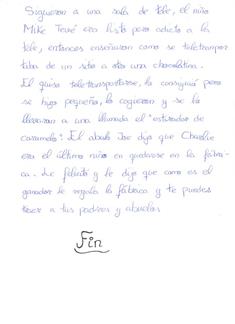 Siguieron a una sala de tele, el niño
Mike Tevé era listo pero adicto a la
tele, entonces enseñaron como se teletranspor
taba de un sitio a otro una chocolatina.
El quiso teletransportarse, lo consiguió pero
se hizo pequeño, lo cogieron y se lo
llevaron a una llamada el "estirador de
caramelo". El abuelo Joe dijo que Charlie
era el último niño en quedarse en la fábri-
ca. Le felicitó y le dijo que como es el
ganador le regala la fábrica y te puedes
traer a tus padres y abuelos
Fin